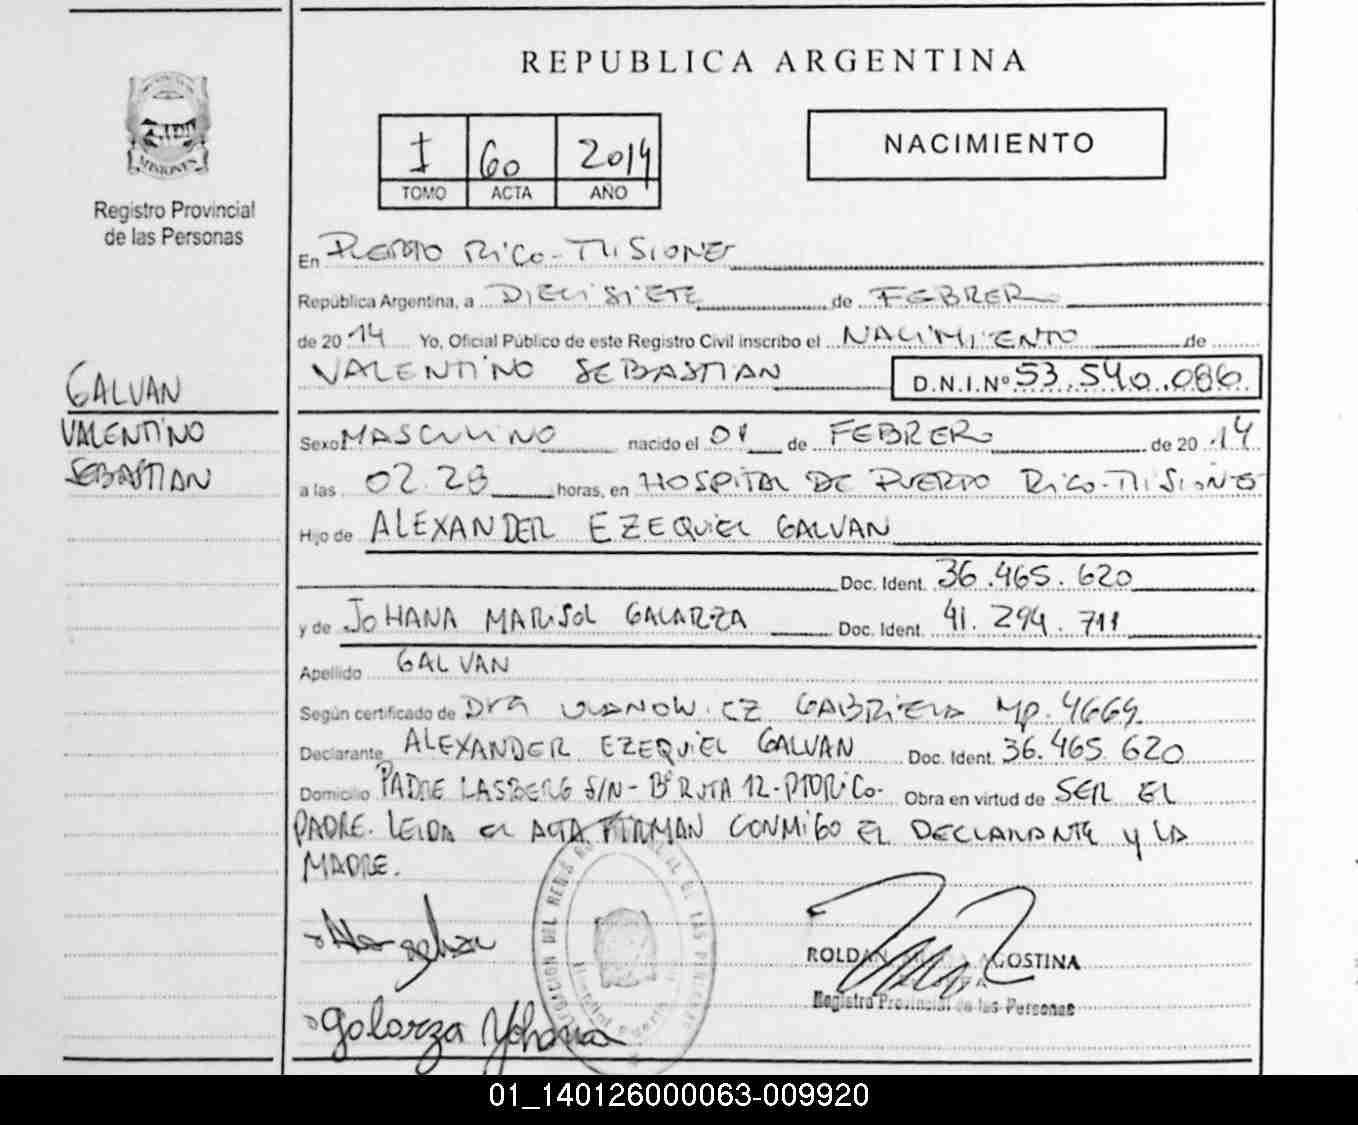 REPUBLICA ARGENTINA
MISIONES
Registro Provincial
de las Personas
I 60 2014
TOMO ACTA AÑO
NACIMIENTO
En PUERTO RICO - MISIONES
República Argentina, a DIECISIETE de FEBRERO
de 20 14 Yo, Oficial Público de este Registro Civil inscribo el NACIMIENTO de
VALENTINO SEBASTIAN D.N.I.Nº 53.540.086
GALVAN
VALENTINO
SEBASTIAN
Sexo MASCULINO nacido el 01 de FEBRERO de 20 14
a las 02.28 horas, en HOSPITAL DE PUERTO RICO - MISIONES
Hijo de ALEXANDER EZEQUIEL GALVAN
Doc. Ident. 36.465.620
y de JOHANA MARISOL GALARZA Doc. Ident. 41.294.711
Apellido GALVAN
Según certificado de Dra GABRIELA MP. 4669
Declarante ALEXANDER EZEQUIEL GALVAN Doc. Ident. 36.465.620
Domicilio PADRE LASBERG S/N - Bº RUTA 12 - PTO RICO - Obra en virtud de SER EL
PADRE. LEIDA EL ACTA FIRMAN CONMIGO EL DECLARANTE Y LA
MADRE.
ROLDAN AGOSTINA
Registro Provincial de las Personas
Galarza Yohana
01_140126000063-009920